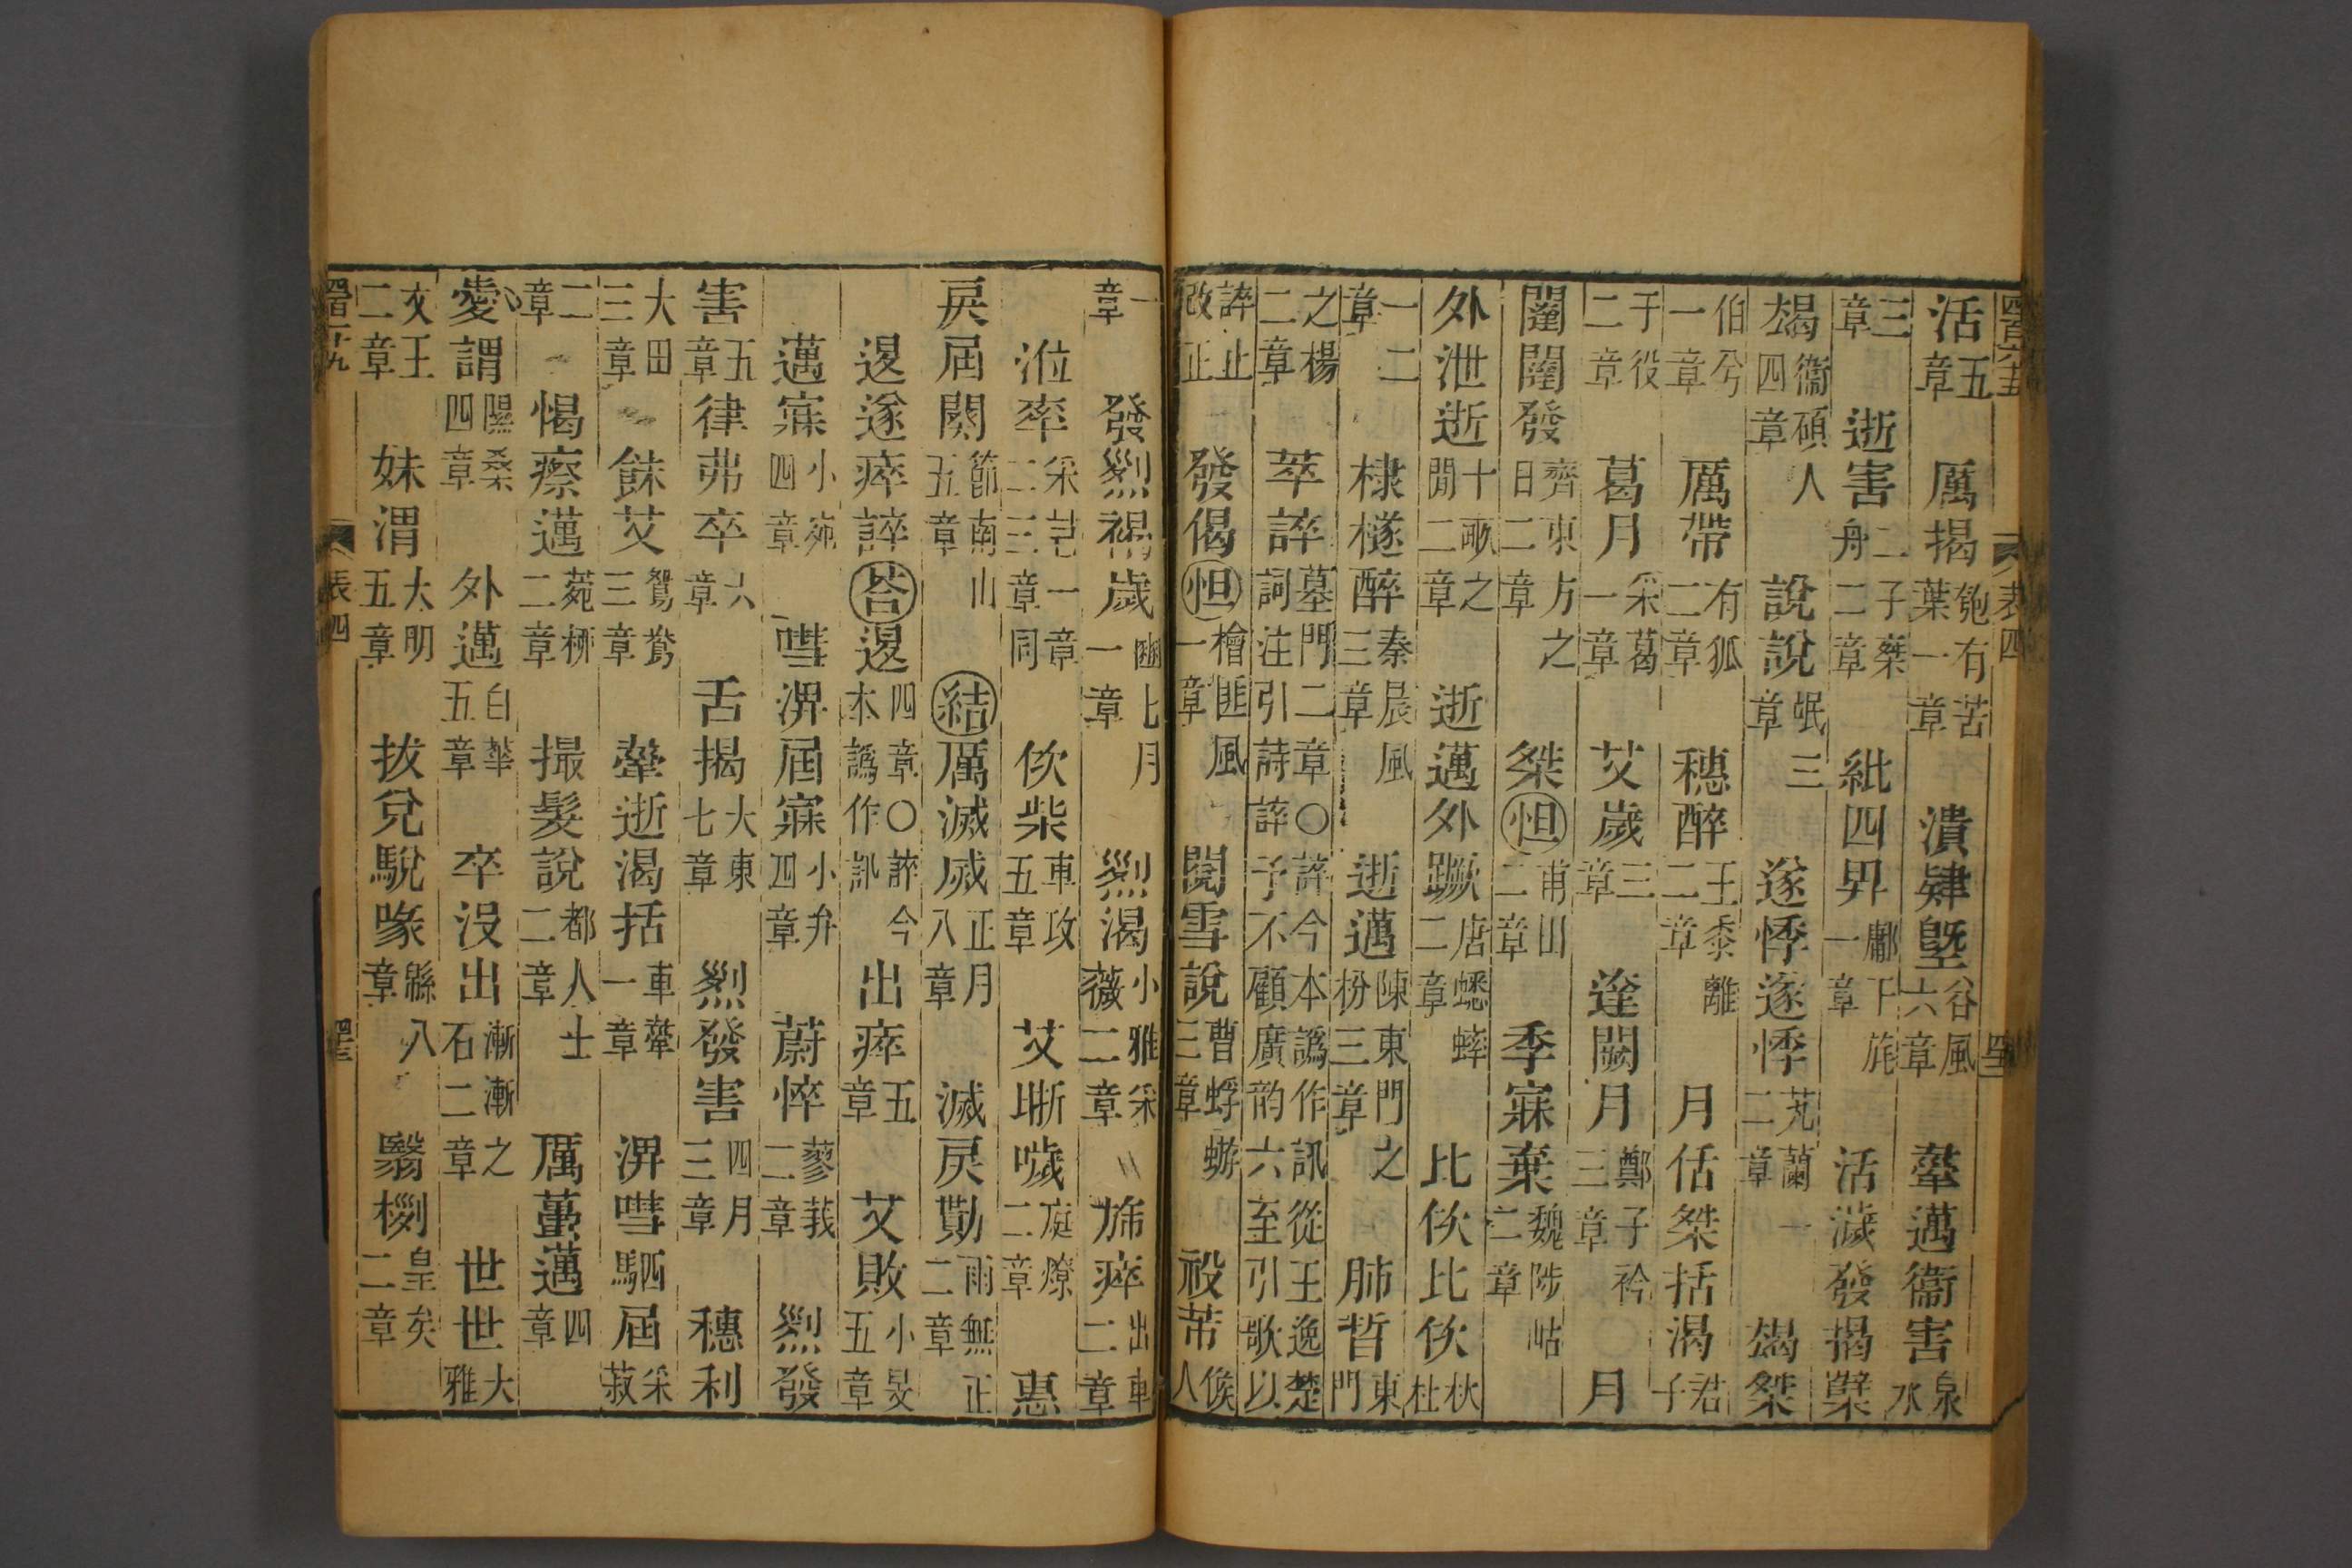 活五章 厲揭匏有苦葉一章 潰肄墍谷風六章 舝邁衞害泉水
三章 逝害二子乘舟二章 紕四畀鄘干旄一章 活濊發揭櫱
朅衞碩人四章 說說氓三章 遂悸遂悸芄蘭一二章 朅桀
伯兮一章 厲帶有狐二章 穗醉王黍離二章 月佸桀括渴君子
于役二章 葛月采葛一章 艾歲三章 達闕月鄭子衿三章 月
闥闥發齊東方之日二章 桀怛甫田二章 季寐棄魏陟岵二章
外泄逝十畝之閒二章 逝邁外蹶唐蟋蟀二章 比佽比佽杕杜
一二章 棣檖醉秦晨風三章 逝邁陳東門之枌三章 肺晢東門
之楊二章 萃誶墓門二章○誶今本譌作訊從王逸楚詞注引詩誶予不顧廣韵六至引歌以
誶止改正 發偈怛檜匪風一章 閱雪說曹蜉蝣三章 祋芾候人
一章 發烈褐歲豳七月一章 烈渴小雅采薇二章 旆瘁出車二章
涖率采芑一章二三章同 佽柴車攻五章 艾晣噦庭燎二章 惠
戾屆闋節南山五章 結厲滅威正月八章 滅戾勩雨無正二章
退遂瘁誶荅退四章○誶今本譌作訊 出瘁五章 艾敗小旻五章
邁寐小宛四章 嘒淠屆寐小弁四章 蔚悴蓼莪二章 烈發
害五章 律弗卒六章 舌揭大東七章 烈發害四月三章 穗利
大田三章 餗艾鴛鴦三章 舝逝渴括車舝一章 淠嘒駟屆采菽
二章 愒瘵邁菀柳二章 撮髮說都人士二章 厲蠆邁四章
愛謂隰桑四章 外邁白華五章 卒沒出漸漸之石二章 世世大雅
文王二章 妹渭大明五章 拔兌駾喙緜八章 翳栵皇矣二章